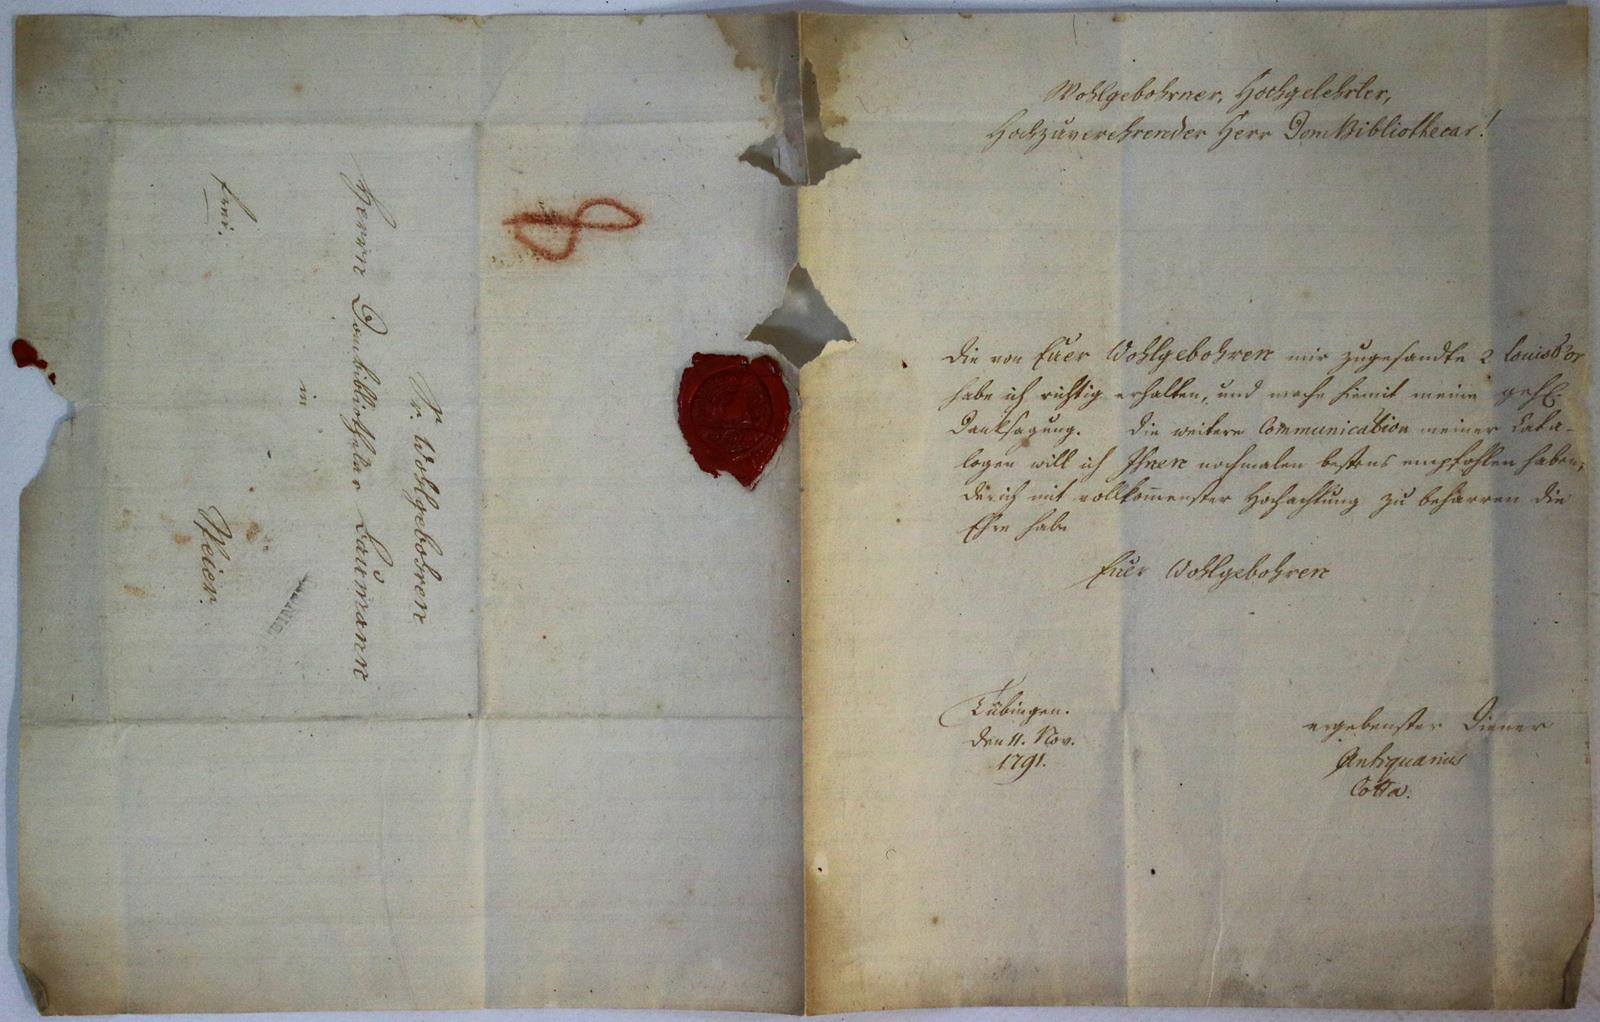 Wohlgebohrner, Hochgelehrter,
Hochzuverehrender Herr Dom Bibliothecar!
Die von Euer Wohlgebohren mir zugesandte 2 Louisd'or
habe ich richtig erhalten, und mache hiemit meine gehl.
Danksagung. Die weitere Communication meiner Cata-
logen will ich Ihnen nochmalen bestens empfohlen haben,
der ich mit vollkom̅enster Hochachtung zu beharren die
Ehre habe
Euer Wohlgebohren
Tübingen.
den 11. Nov.
1791.
ergebenster Diener
Antiquarius
Cotta.
Sr. Wohlgebohren
Herrn Dombibliothekar Laümann
in
frei.